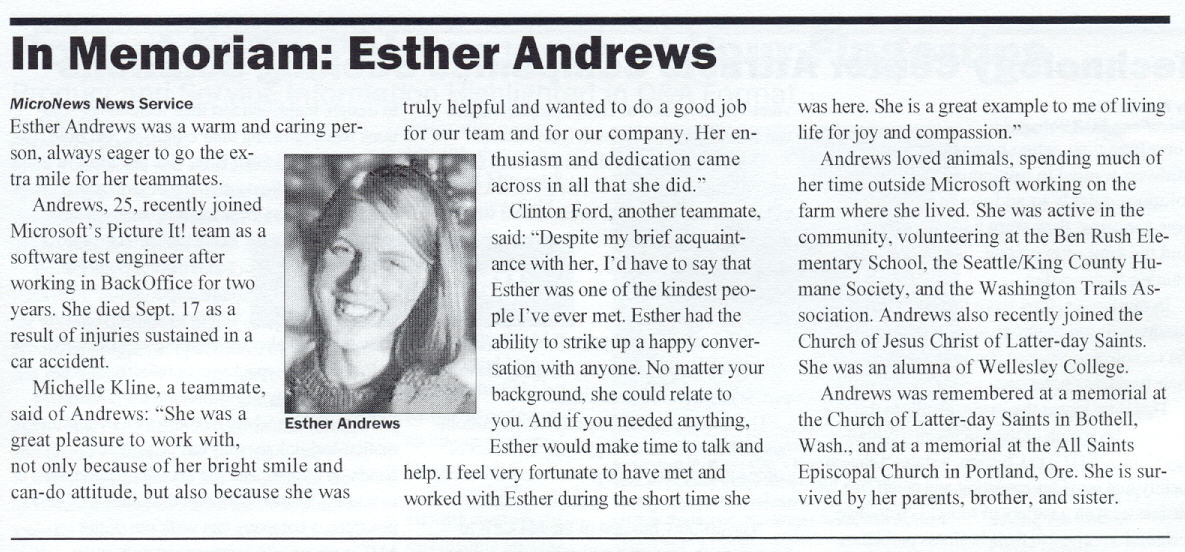 In Memoriam: Esther Andrews
MicroNews News Service
Esther Andrews was a warm and caring per-
son, always eager to go the ex-
tra mile for her teammates.
Andrews, 25, recently joined
Microsoft's Picture It! team as a
software test engineer after
working in BackOffice for two
years. She died Sept. 17 as a
result of injuries sustained in a
car accident.
Michelle Kline, a teammate,
said of Andrews: “She was a
great pleasure to work with,
not only because of her bright smile and
can-do attitude, but also because she was
Esther Andrews
truly helpful and wanted to do a good job
for our team and for our company. Her en-
thusiasm and dedication came
across in all that she did.”
Clinton Ford, another teammate,
said: “Despite my brief acquaint-
ance with her, I'd have to say that
Esther was one of the kindest peo-
ple I've ever met. Esther had the
ability to strike up a happy conver-
sation with anyone. No matter your
background, she could relate to
you. And if you needed anything,
Esther would make time to talk and
help. I feel very fortunate to have met and
worked with Esther during the short time she
was here. She is a great example to me of living
life for joy and compassion.”
Andrews loved animals, spending much of
her time outside Microsoft working on the
farm where she lived. She was active in the
community, volunteering at the Ben Rush Ele-
mentary School, the Seattle/King County Hu-
mane Society, and the Washington Trails As-
sociation. Andrews also recently joined the
Church of Jesus Christ of Latter-day Saints.
She was an alumna of Wellesley College.
Andrews was remembered at a memorial at
the Church of Latter-day Saints in Bothell,
Wash., and at a memorial at the All Saints
Episcopal Church in Portland, Ore. She is sur-
vived by her parents, brother, and sister.